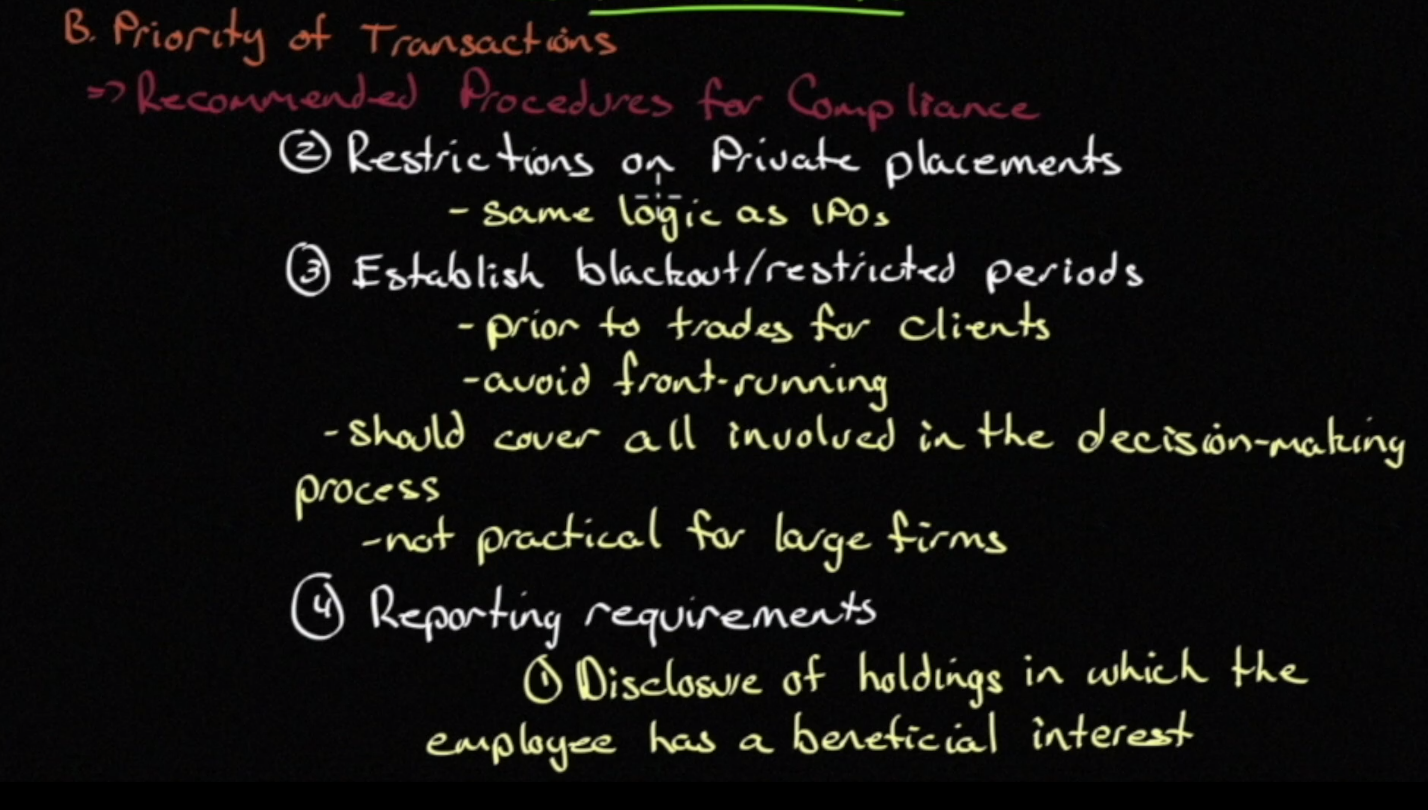 B. Priority of Transactions
=> Recommended Procedures for Compliance
② Restrictions on Private placements
- same logic as IPOs
③ Establish blackout/restricted periods
- prior to trades for clients
- avoid front-running
- should cover all involved in the decision-making
process
- not practical for large firms
④ Reporting requirements
① Disclosure of holdings in which the
employee has a beneficial interest